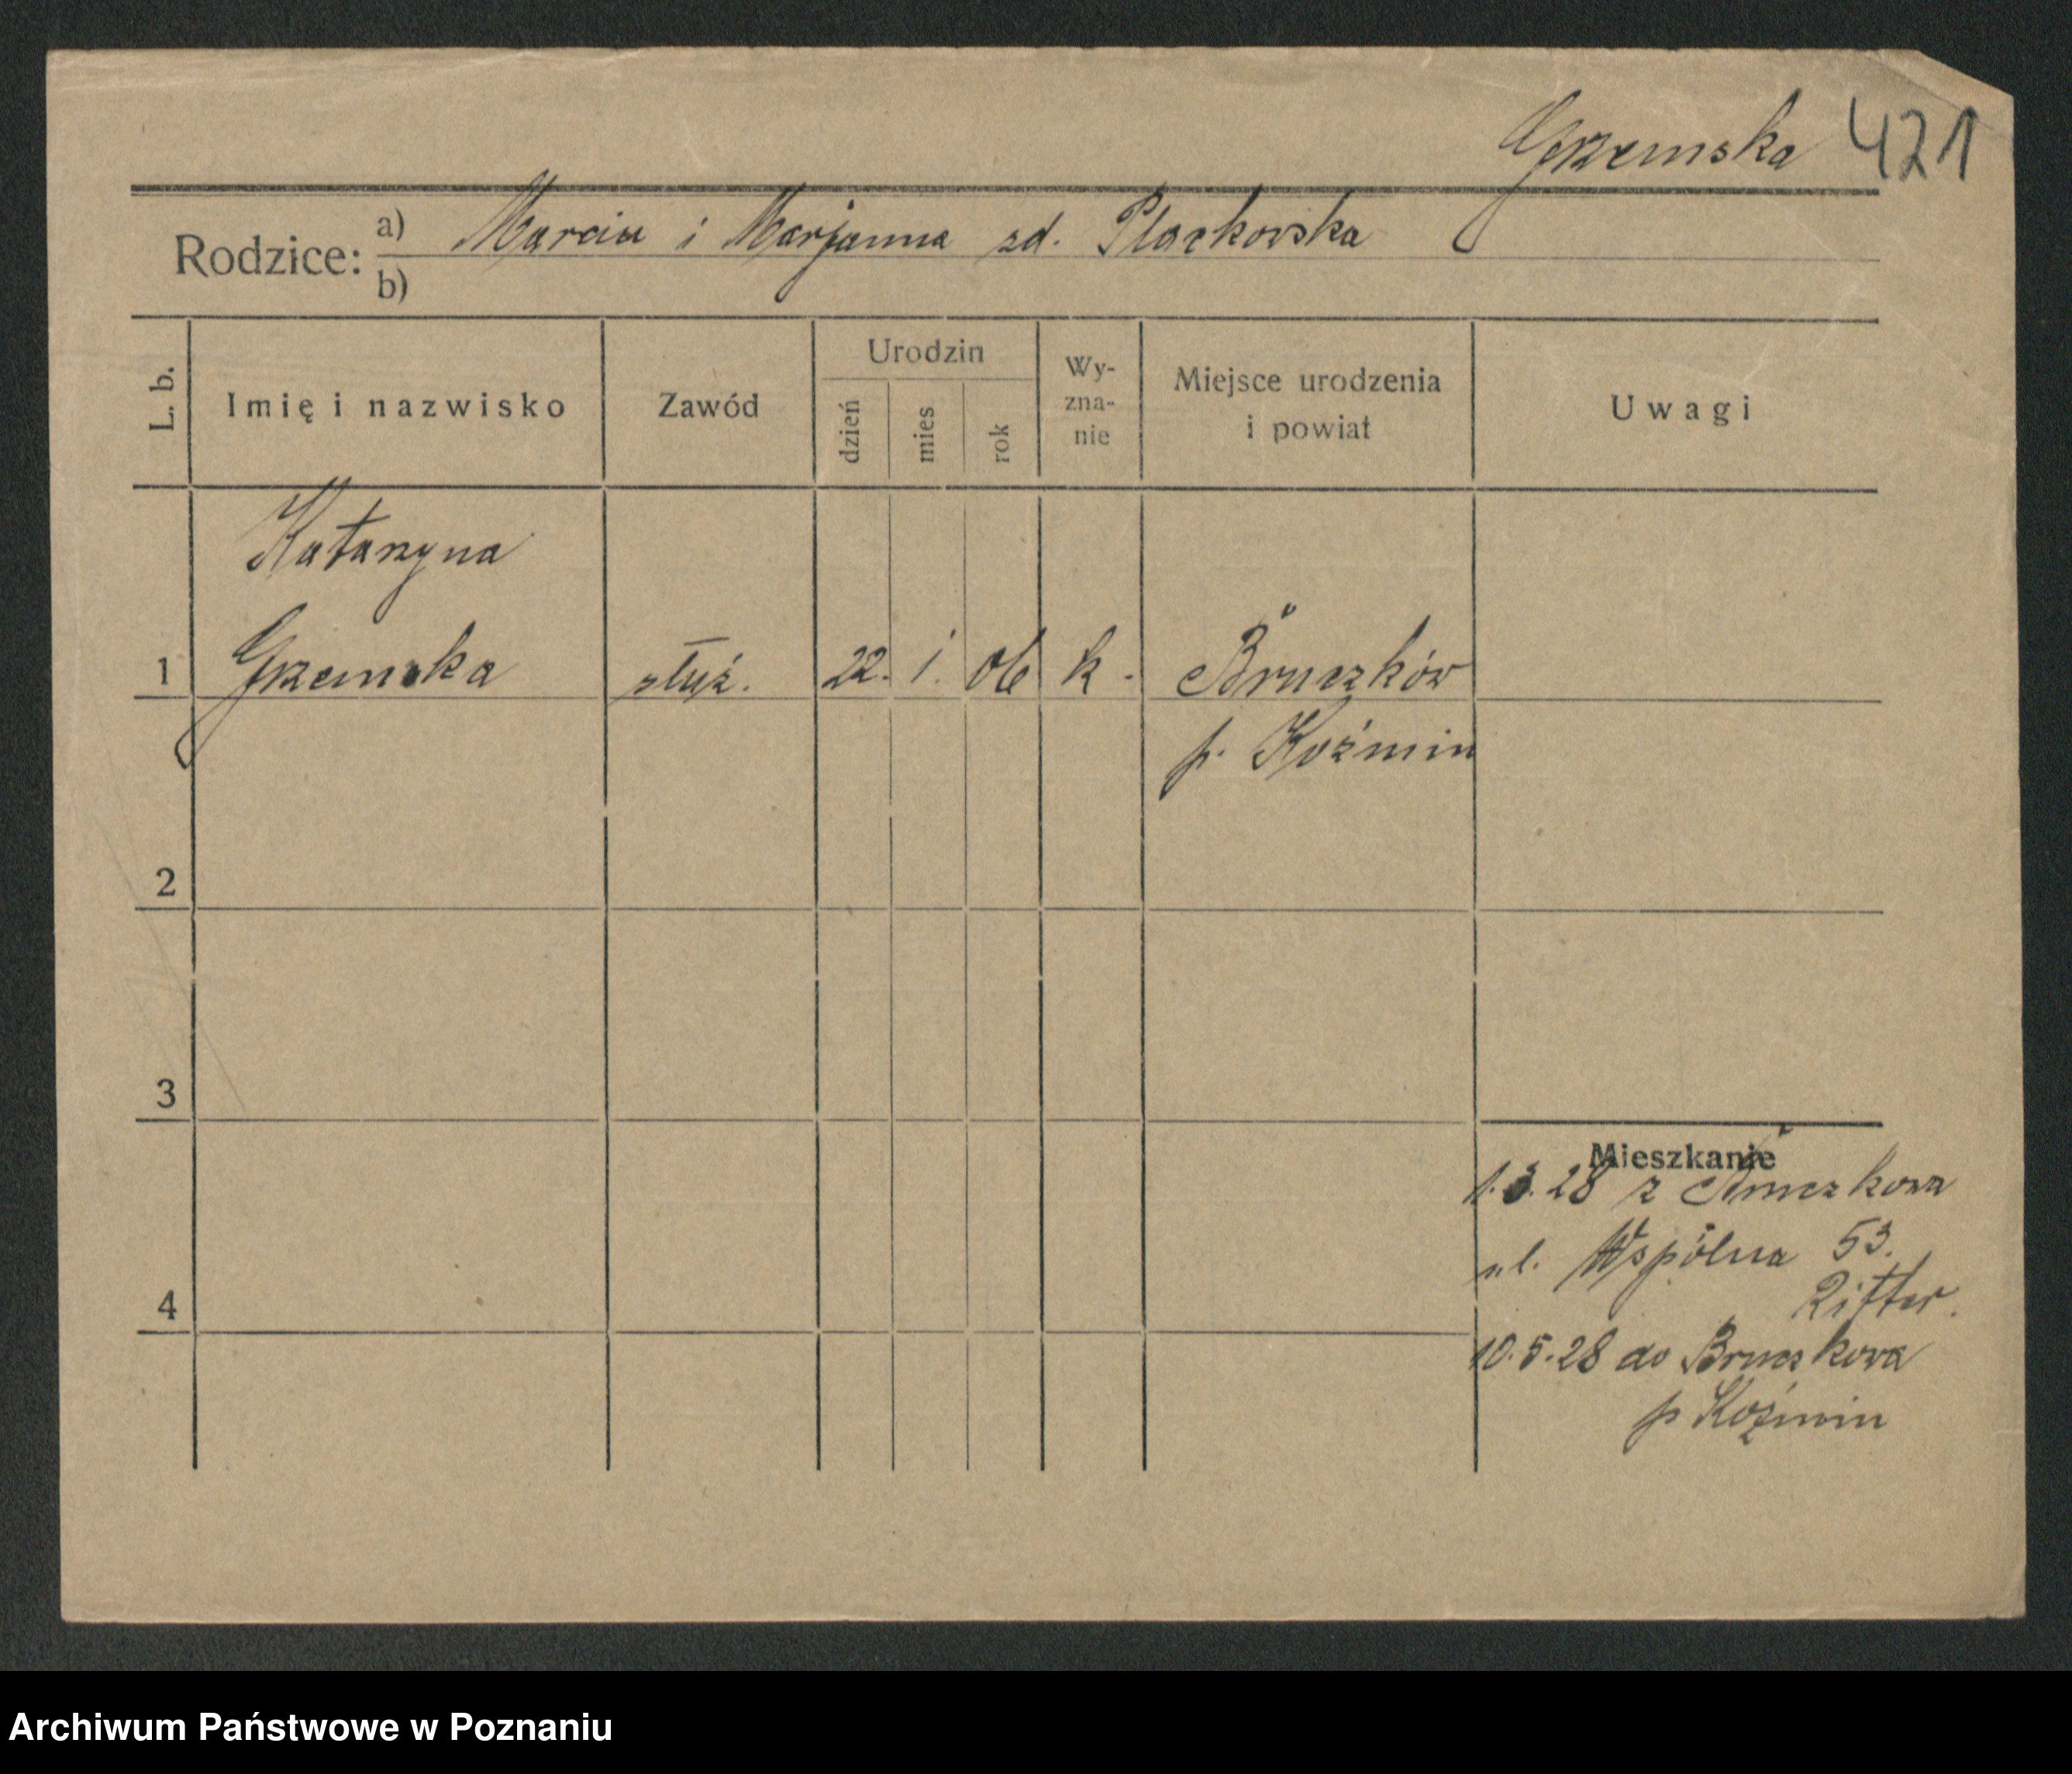 Grzemska 421
Rodzice: a) Marcin i Marjanna zd. Plackowska
b)
L. b. Imię i nazwisko Zawód Urodzin dzień mies rok Wy-zna-nie Miejsce urodzenia i powiat Uwagi
Katarzyna
1 Grzemska służ. 22. 1. 06 k. Bruczków
p. Koźmin
2
3
Mieszkanie
1.3.28 z Bruczkowa
ul. Wspólna 53.
Ritter.
4
10.5.28 do Bruczkowa
p Koźmin
Archiwum Państwowe w Poznaniu